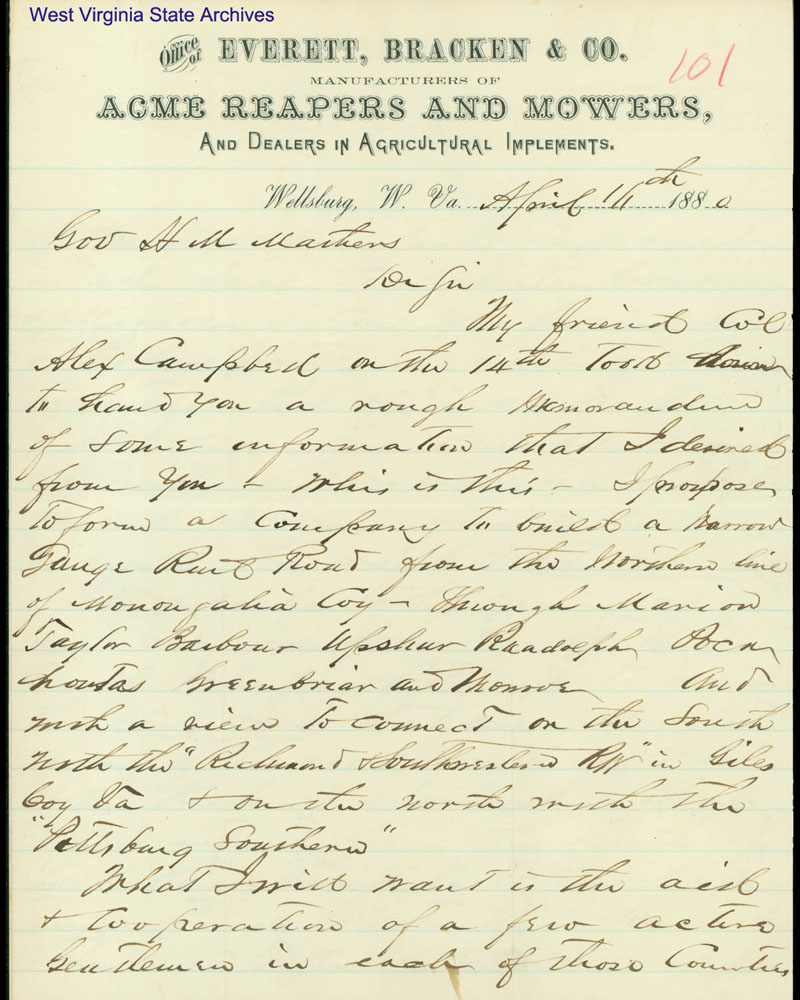 West Virginia State Archives
Office of EVERETT, BRACKEN & CO.
101
MANUFACTURERS OF
ACME REAPERS AND MOWERS,
AND DEALERS IN AGRICULTURAL IMPLEMENTS.
Wellsburg, W. Va. April 16th 1880
Gov H M Mathews
Dr Sir
My friend Col
Alex Campbell on the 14th Took
to hand you a rough Memorandum
of some information that I desired
from you – This is this – I propose
To form a Company To build a Narrow
Gauge Rail Road from the Northern line
of Monongalia Coy – Through Marion
Taylor Barbour Upshur Randolph Poca
hontas Greenbriar and Monroe And
with a view To connect on the South
with the "Richmond & Southwestern RW" in Giles
Coy Va & on the north with the
"Pittsburg Southern"
What I will want is the aid
& Cooperation of a few active
Gentlemen in each of those Counties